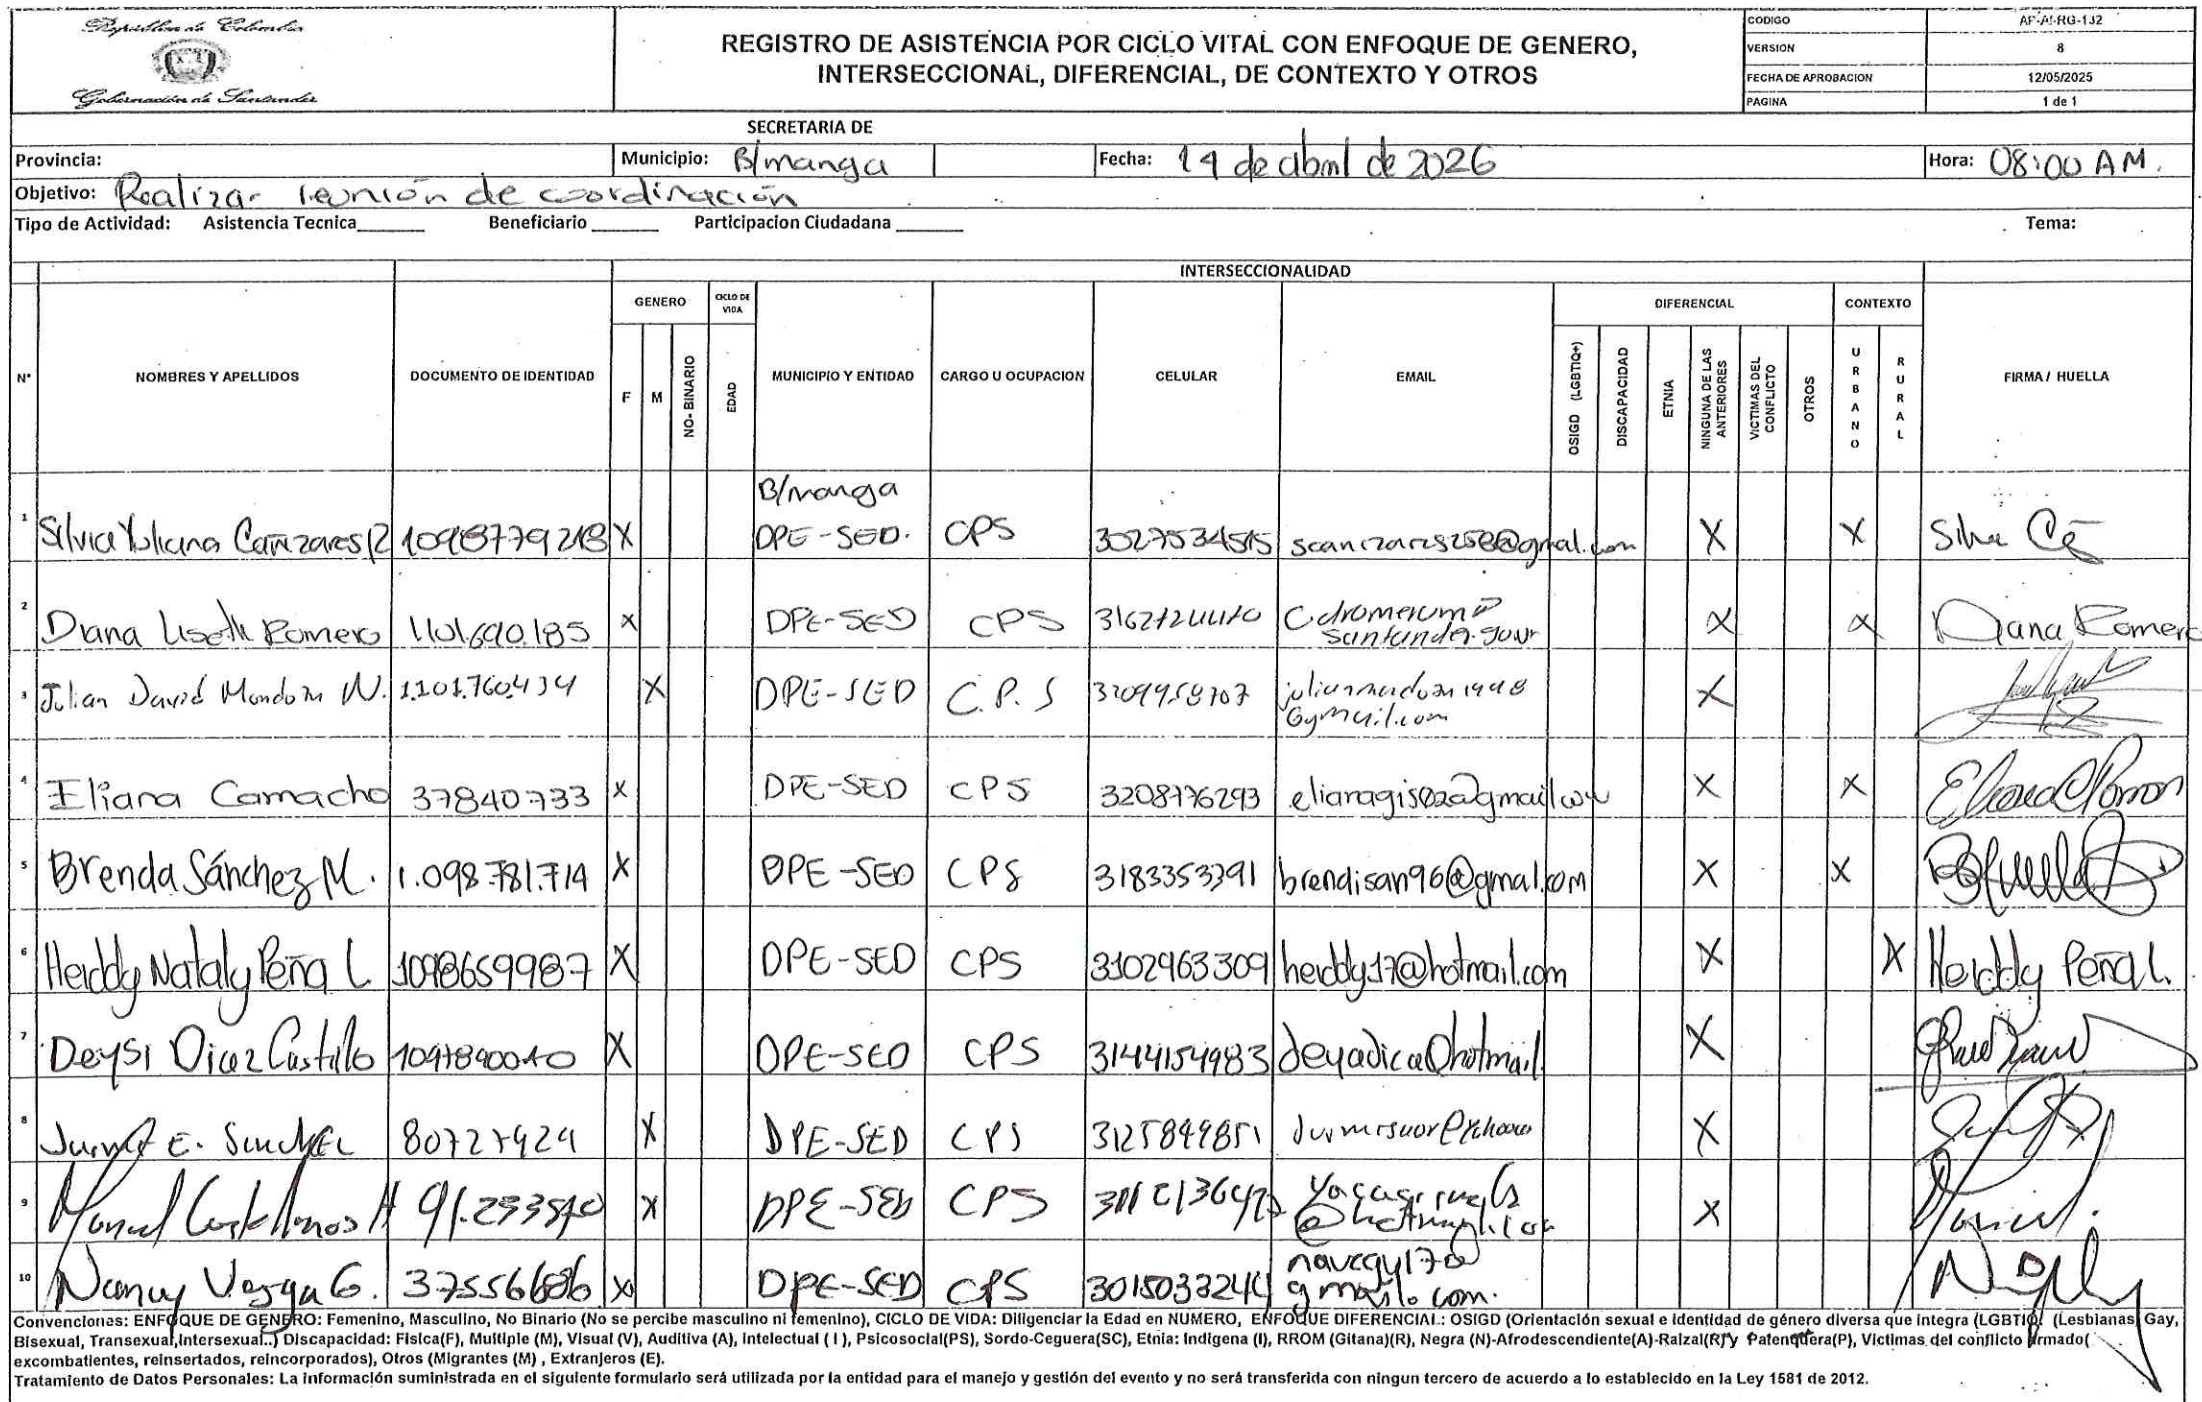 República de Colombia
Gobernación de Santander
REGISTRO DE ASISTENCIA POR CICLO VITAL CON ENFOQUE DE GENERO,
INTERSECCIONAL, DIFERENCIAL, DE CONTEXTO Y OTROS
CODIGO AP-AI-RG-132
VERSION 8
FECHA DE APROBACION 12/05/2025
PAGINA 1 de 1
SECRETARIA DE
Provincia: Municipio: B/manga Fecha: 14 de abril de 2026 Hora: 08:00 AM.
Objetivo: Realizar reunión de coordinación
Tipo de Actividad: Asistencia Tecnica______ Beneficiario ______ Participacion Ciudadana ______ Tema:
INTERSECCIONALIDAD
GENERO CICLO DE VIDA DIFERENCIAL CONTEXTO
N° NOMBRES Y APELLIDOS DOCUMENTO DE IDENTIDAD F M NO- BINARIO EDAD MUNICIPIO Y ENTIDAD CARGO U OCUPACION CELULAR EMAIL OSIGD (LGBTIQ+) DISCAPACIDAD ETNIA NINGUNA DE LAS ANTERIORES VICTIMAS DEL CONFLICTO OTROS URBANO RURAL FIRMA / HUELLA
B/manga
1 Silvia Yuliana Cañizares R 1098779218 X DPE-SED. CPS 3027534515 X X
2 Diana Liseth Romero 1.101.690.185 X DPE-SED CPS X X Diana Romero
3 Julian David Mendoza N. 1.101.760.434 X DPE-SED C.P.S X
4 Eliana Camacho 37840733 X DPE-SED CPS 3208776293 X X
5 Brenda Sánchez M. 1.098.781.714 X DPE-SED CPS 3183353391 brendisan96@gmail.com X X
6 Heiddy Nataly Peña L 1098659987 X DPE-SED CPS 3102963309 heiddy17@hotmail.com X X Heiddy Peña L.
7 Deysi Diaz Castillo X DPE-SED CPS 3144154983 deyadica@hotmail. X
8 E. X DPE-SED CPS 3125849851 X
9 Manuel Castellanos H X DPE-SED CPS X
10 Nancy Vesga G. 37556686 X DPE-SED CPS gmail.com.
Convenciones: ENFOQUE DE GENERO: Femenino, Masculino, No Binario (No se percibe masculino ni femenino), CICLO DE VIDA: Diligenciar la Edad en NUMERO, ENFOQUE DIFERENCIAL: OSIGD (Orientación sexual e identidad de género diversa que integra (LGBTIQ: (Lesbianas, Gay,
Bisexual, Transexual,Intersexual..) Discapacidad: Fisica(F), Multiple (M), Visual (V), Auditiva (A), Intelectual ( I ), Psicosocial(PS), Sordo-Ceguera(SC), Etnia: Indigena (I), RROM (Gitana)(R), Negra (N)-Afrodescendiente(A)-Raizal(R)y Palenquera(P), Victimas del conflicto armado(
excombatientes, reinsertados, reincorporados), Otros (Migrantes (M) , Extranjeros (E).
Tratamiento de Datos Personales: La información suministrada en el siguiente formulario será utilizada por la entidad para el manejo y gestión del evento y no será transferida con ningun tercero de acuerdo a lo establecido en la Ley 1581 de 2012.